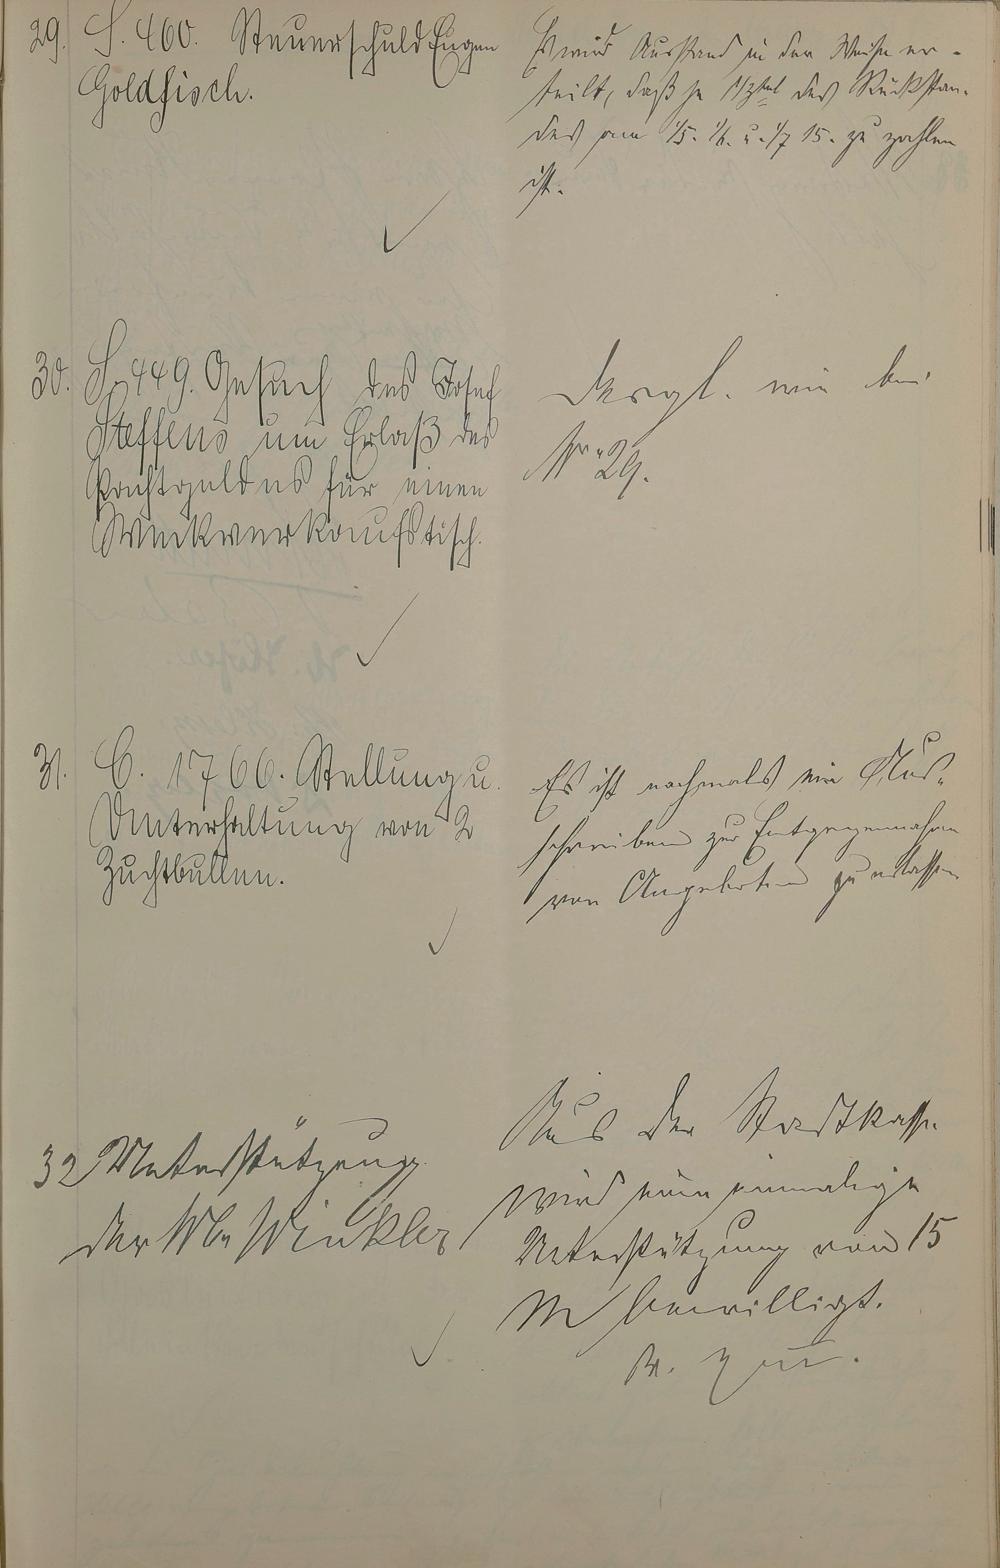 29. S. 460. Steuerschuld Eugen
Goldfisch.
Es wird Ausstand in der Weise er-
teilt, daß je 1/3tel des Rückstan-
des am 1/5. 1/6. u. 1/7 15. zu zahlen
ist.
30. S. 449. Gesuch des Josef
Steffens um Erlaß des
Pachtgeldes für einen
Wurkverkaufstisch.
Desgl. wie bei
Nr. 29.
31. C. 1766. Stellung u.
Unterhaltung von 2
Zuchtbullen.
Es ist nochmals ein Aus-
schreiben zur Entgegennahme
von Angeboten zu erlassen
32 Unterstützung
der Ww Winkler
Aus der Stadtkasse
wird eine einmalige
Unterstützung von 15
M bewilligt.